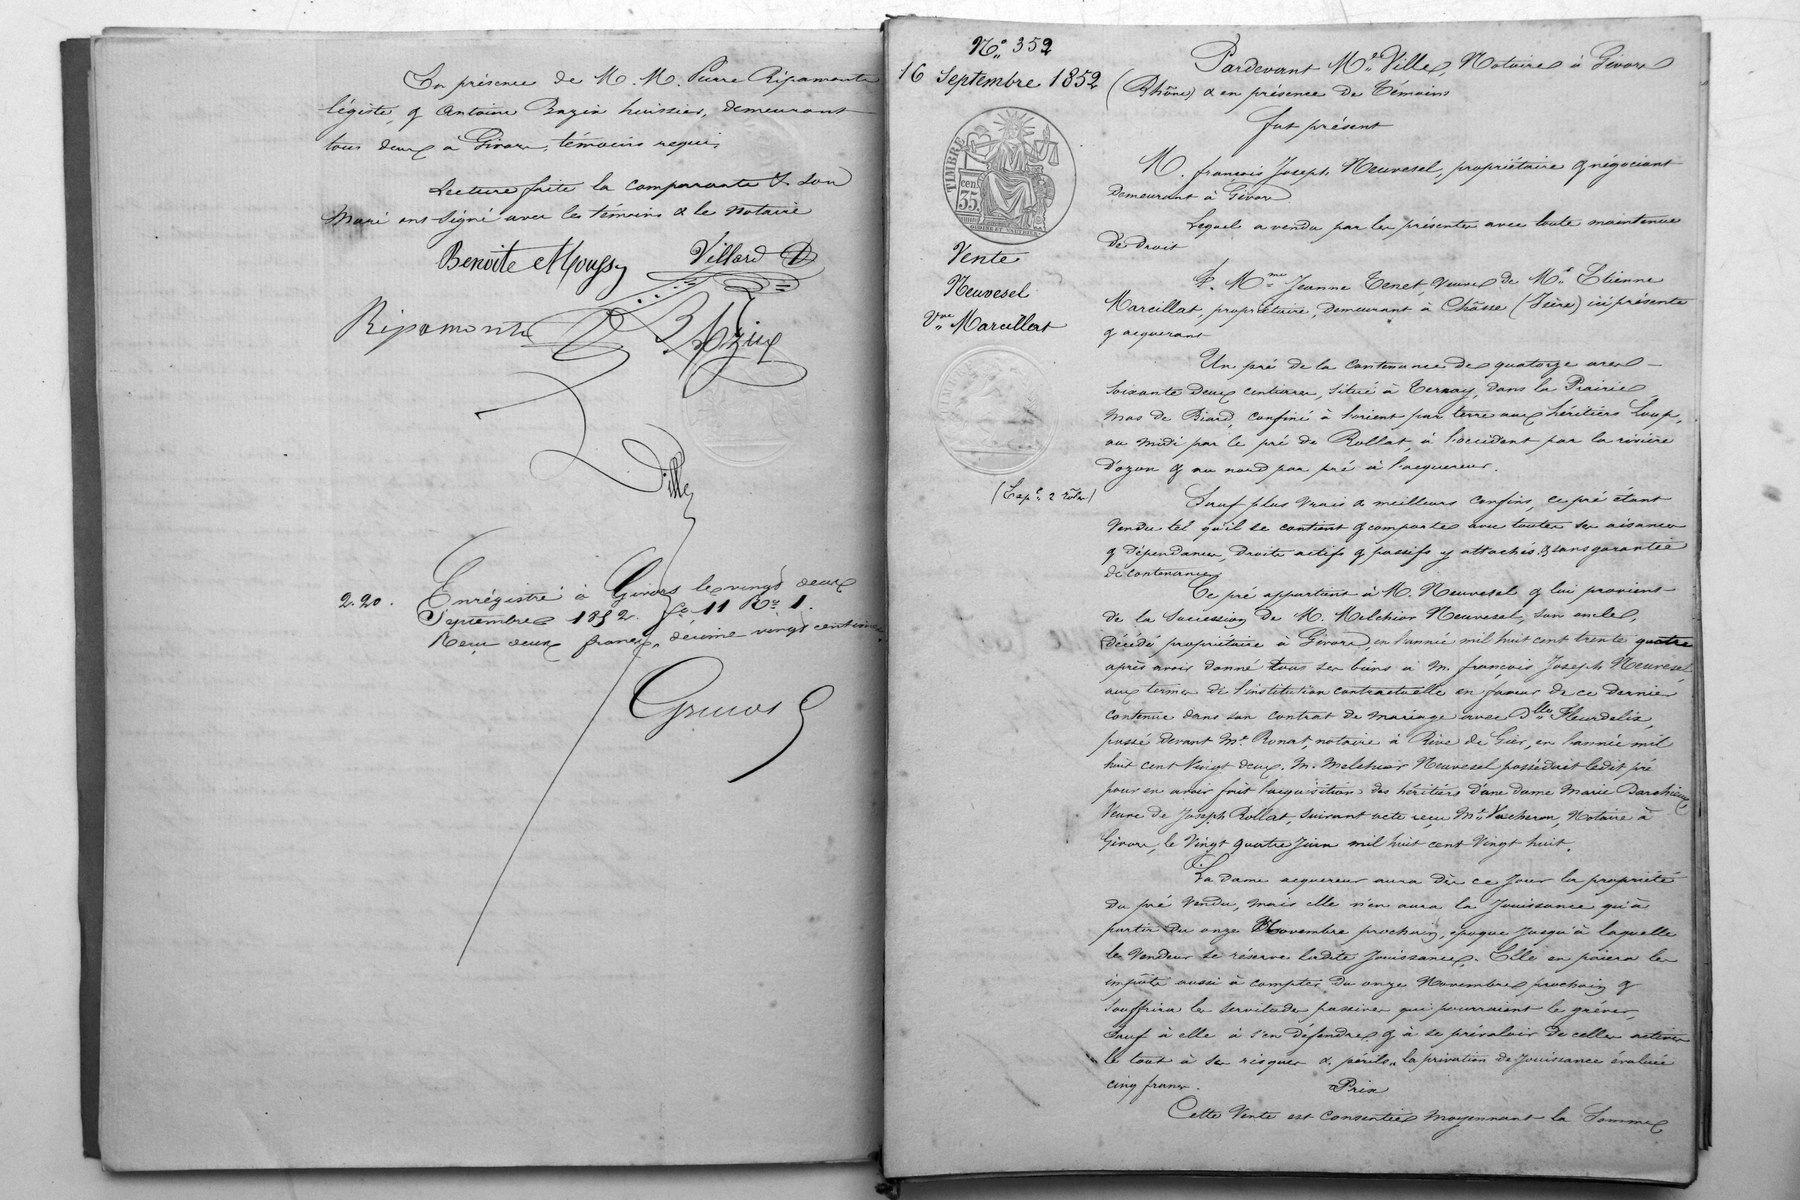 En présence de M. M. Pierre Ripamonte
légiste, & Antoine Bazin huissier, demeurant
tous deux à Givors, témoins requis
Lecture faite la comparante & son
Mari ont signé avec les témoins & le Notaire
Benoite Moussy Villard
Ripamonte Bazin
Ville
2.20. Enrégistré à Givors le vingt deux
Septembre 1852. fo 11 Ro 1.
Reçu deux francs, décime vingt centimes
N° 352
16 Septembre 1852
TIMBRE
35 cen.
Vente
Neuvesel
Vve Marcillat
(Exp. 2 rôles)
Pardevant Me Ville, Notaire à Givors
(Rhône) & en présence de Témoins
fut présent
M. françois Joseph Neuvesel, propriétaire & négociant
demeurant à Givors
Lequel a vendu par les présentes avec toute maintenue
de droit
à Mme Jeanne Tenet, Veuve de Mr Etienne
Marcillat, propriétaire, demeurant à Châsse (Isère) ici présente
& acquerant
Un pré de la contenance de quatorze ares
soixante deux centiares, situé à Ternay, dans la Prairie,
Mas de Biard, confiné à l'orient par terre aux héritiers Loup,
au midi par le pré de Rollat, à l'occident par la rivière
d'ozon & au nord par pré à l'acquereur.
Sauf plus vrais & meilleurs confins, ce pré étant
Vendu tel qu'il se contient & comporte avec toutes ses aisances
& dépendances, Droits actifs & passifs y attachés & sans garantie
de contenance,
Ce pré appartient à M. Neuvesel & lui provient
de la Succession de M. Melchior Neuvesel, son oncle,
décédé propriétaire à Givors, en l'année mil huit cent trente quatre
après avoir donné tous ses biens à M. françois Joseph Neuvesel
aux termes de l'institution contractuelle en faveur de ce dernier
contenue dans son contrat de mariage avec Dlle Fleurdelix,
passé devant Me Ronat, notaire à Rive de Gier, en l'année mil
huit cent Vingt deux. M. Melchior Neuvesel possédait ledit pré
pour en avoir fait l'acquisition des héritiers d'une dame Marie
Veuve de Joseph Rollat, suivant acte reçu Me Vacheron, Notaire à
Givors, le Vingt quatre Juin mil huit cent Vingt huit.
La dame acquereur aura dès ce Jour la propriété
du pré Vendu, mais elle n'en aura la Jouissance qu'à
partir du onze Novembre prochain, époque Jusqu'à laquelle
le Vendeur se réserve ladite Jouissance. Elle en paiera les
impôts aussi à compter du onze Novembre prochain &
souffrira les servitudes passives qui pourraient le gréver,
Sauf à elle à s'en défendre, & à se prévaloir de celles actives
le tout à ses risques & périls, la privation de Jouissance évaluée
cinq francs.
Prix
Cette Vente est consentie moyennant la Somme